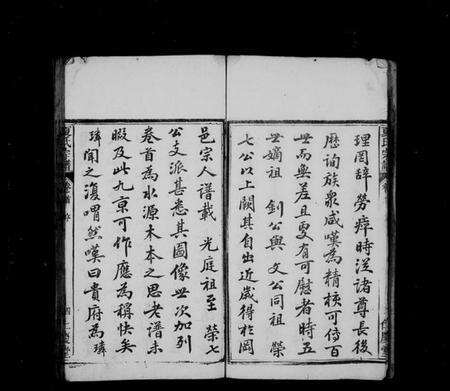 理罔辭勞瘁時從諸尊長後
歷詢族衆咸嘆為精核可傳百
世而無差且更有可慰者時五
世嫡祖釗公與文公同祖榮
七公以上闕其自出近歲得於岡
邑宗人譜載光庭祖至榮七
公支派甚悉其圖像世次加列
卷首為水源木本之思老譜未
暇及此九京可作應為稱快矣
琦聞之復喟然嘆曰貴府為琦